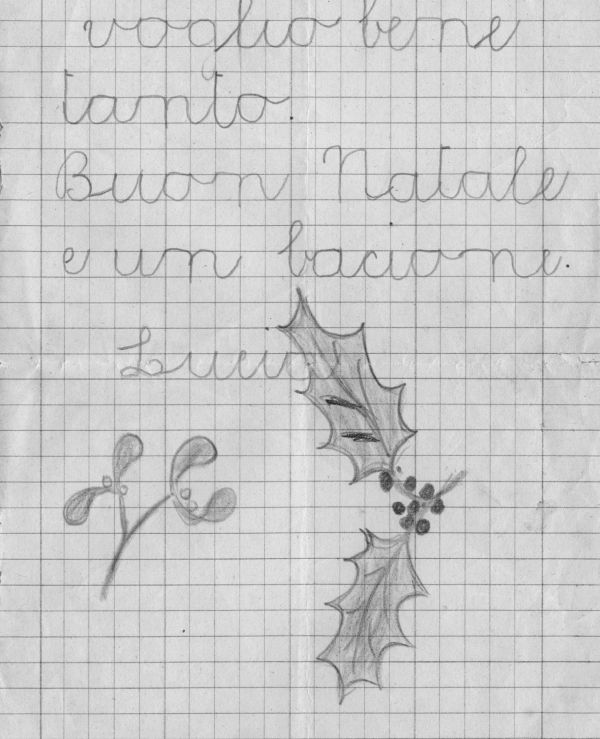 voglio bene
tanto.
Buon Natale
e un bacione.
Lucia